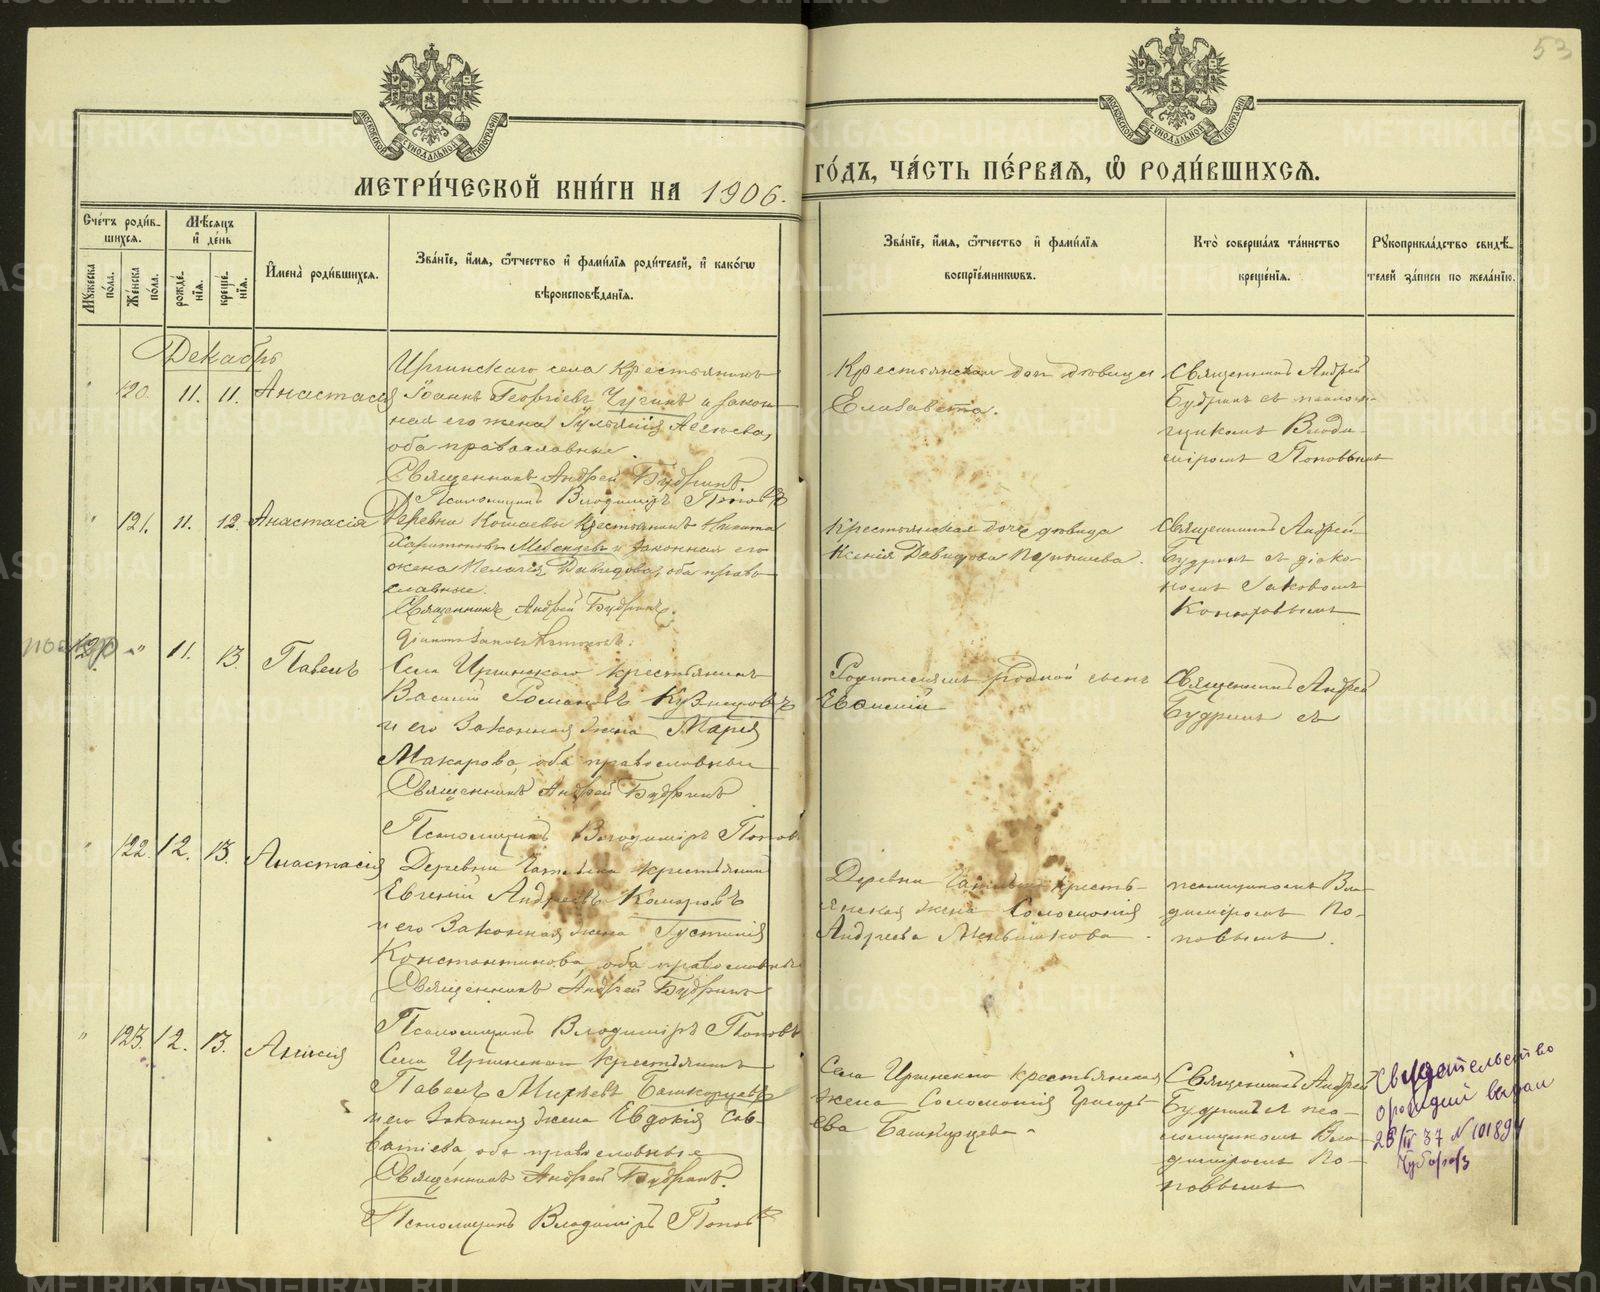 53
МОСКОВСКОЙ СѴНОДАЛЬНОЙ ТИПОГРАФІИ
МОСКОВСКОЙ СѴНОДАЛЬНОЙ ТИПОГРАФІИ
МЕТРИ́ЧЕСКОЙ КНИ́ГИ НА 1906.
ГО́ДЪ, ЧА́СТЬ ПЕ́РВАѦ, Ѽ РОДИ́ВШИХСѦ.
Сче́тъ роди́в-
шихсѧ.
Мꙋ́жеска по́ла.
Же́нска по́ла.
Мѣ́сѧцъ
и҆ де́нь
рожде́нїѧ.
креще́нїѧ.
И҆мена̀ роди́вшихсѧ.
Зва́нїе, и҆́мѧ, ѻ҆́тчество и҆ фами́лїѧ роди́телей, и҆ како́гѡ
вѣроисповѣ́данїѧ.
Зва́нїе, и҆́мѧ, ѻ҆́тчество и҆ фами́лїѧ
воспрїе́мникѡвъ.
Кто̀ соверша́лъ та́инство
креще́нїѧ.
Рꙋкоприкла́дство свидѣ́-
телей за́писи по жела́нїю.
Декабрь
" 120. 11. 11. Анастасія
Иргинскаго села крестьянинъ
Іоаннъ Георгіевъ Чугинъ и закон-
ная его жена
оба православные.
Священникъ Андрей Будринъ
Псаломщикъ Владиміръ Поповъ
Крестьянская доч девица
Елизавета.
Священникъ Андрей
Будринъ съ псалом-
щикомъ Влади-
міромъ Поповымъ
" 121. 11. 12 Анастасія
Деревни Кошаевы крестьянинъ Никита
Харитоновъ и законная его
жена Пелагія Давидова, оба право-
славные.
Священникъ Андрей Будринъ.
Крестьянская дочь девица
Ксенія Давидова
Священникъ Андрей
Будринъ съ діако-
номъ Іаковомъ
120 " 11. 13. Павелъ
Села Иргинскаго крестьянинъ
Василій Романовъ Кузнецовъ
и его законная жена Марія
Макарова, оба православные
Священникъ Андрей Будринъ
Псаломщикъ Владиміръ Поповъ
Родителямъ родной сынъ
Евѳимій
Священникъ Андрей
Будринъ съ
" 122. 12. 13. Анастасія
Деревни крестьянинъ
Евгеній Андреевъ Комаровъ
и его законная жена Іустинія
Константинова, оба православные
Священникъ Андрей Будринъ
Псаломщикъ Владиміръ Поповъ
Деревни кресть-
янская жена Соломонія
Андреева Меньшакова
псаломщикомъ Вла-
диміромъ По-
повымъ.
" 123. 12. 13. Анисія
Села Иргинскаго крестьянинъ
Павелъ Михеевъ Башкирцевъ
и его законная жена Евдокія Сав-
ватіева, оба православные
Священникъ Андрей Будринъ.
Псаломщикъ Владиміръ Поповъ
Села Иргинскаго крестьянская
жена Соломонія Григорь-
ева Башкирцева.
Священникъ Андрей
Будринъ съ пса-
ломщикомъ Вла-
диміромъ По-
повымъ
Свидетельство
о рождении выдан
28/IV 37 N 101894
METRIKI.GASO-URAL.RU